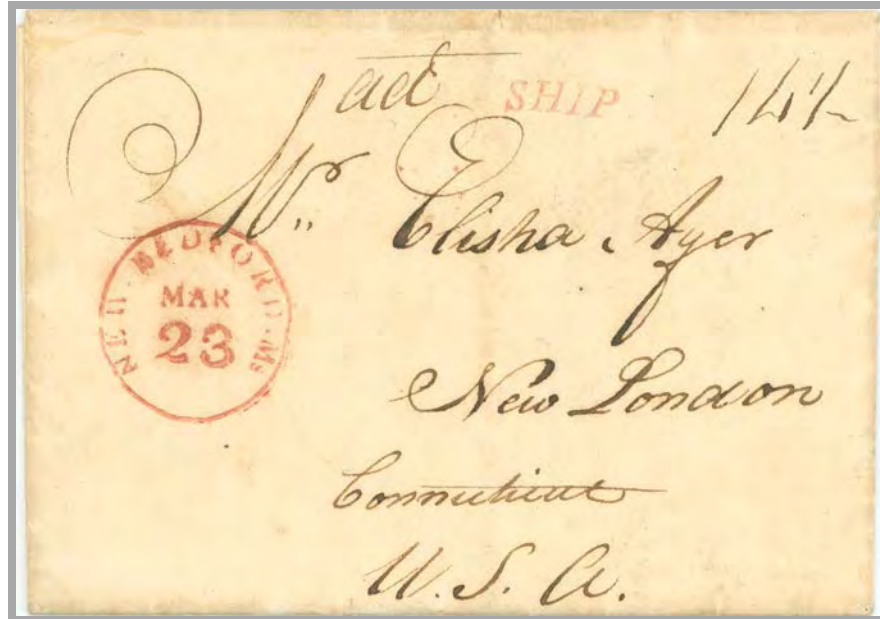 SHIP
Mr. Elisha Ayer
NEW·BEDFORD·Ms
MAR
23
New London
Connecticut
U. S. A.